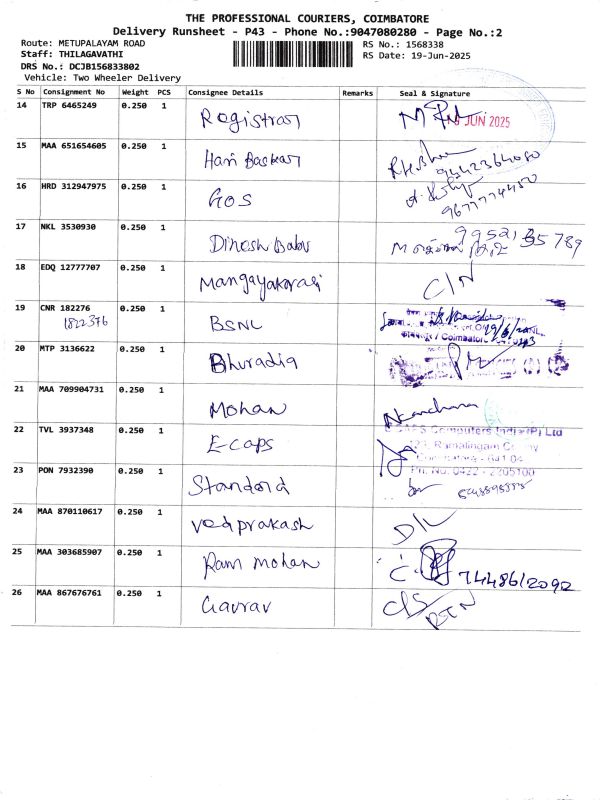 THE PROFESSIONAL COURIERS, COIMBATORE
Delivery Runsheet - P43 - Phone No.:9047080280 - Page No.:2
Route: METUPALAYAM ROAD RS No.: 1568338
Staff: THILAGAVATHI RS Date: 19-Jun-2025
DRS No.: DCJB156833802
Vehicle: Two Wheeler Delivery
S No Consignment No Weight PCS Consignee Details Remarks Seal & Signature
14 TRP 6465249 0.250 1 Registrar JUN 2025
15 MAA 651654605 0.250 1 Hari Baskar 9442364080
16 HRD 312947975 0.250 1 GOS 9677774450
17 NKL 3530930 0.250 1 Dinesh Babu
18 EDQ 12777707 0.250 1 Mangayakarasi C/N
19 CNR 182276 0.250 1 BSNL
1822376
20 MTP 3136622 0.250 1 Bhuradia
21 MAA 709904731 0.250 1 Mohan
22 TVL 3937348 0.250 1 E-caps Computers India (P) Ltd
Ramalingam
23 PON 7932390 0.250 1 Standord Ph. No. 0422 - 2205100
24 MAA 870110617 0.250 1 vedprakash D/L
25 MAA 303685907 0.250 1 Ram mohan 7448612092
26 MAA 867676761 0.250 1 Gaurav C/S
RTN